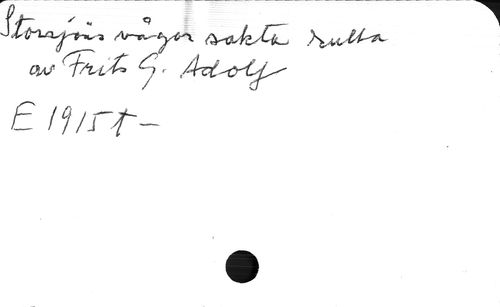 Storsjöns vågor sakta rulla
av Frits G. Adolf
E 1915 t –